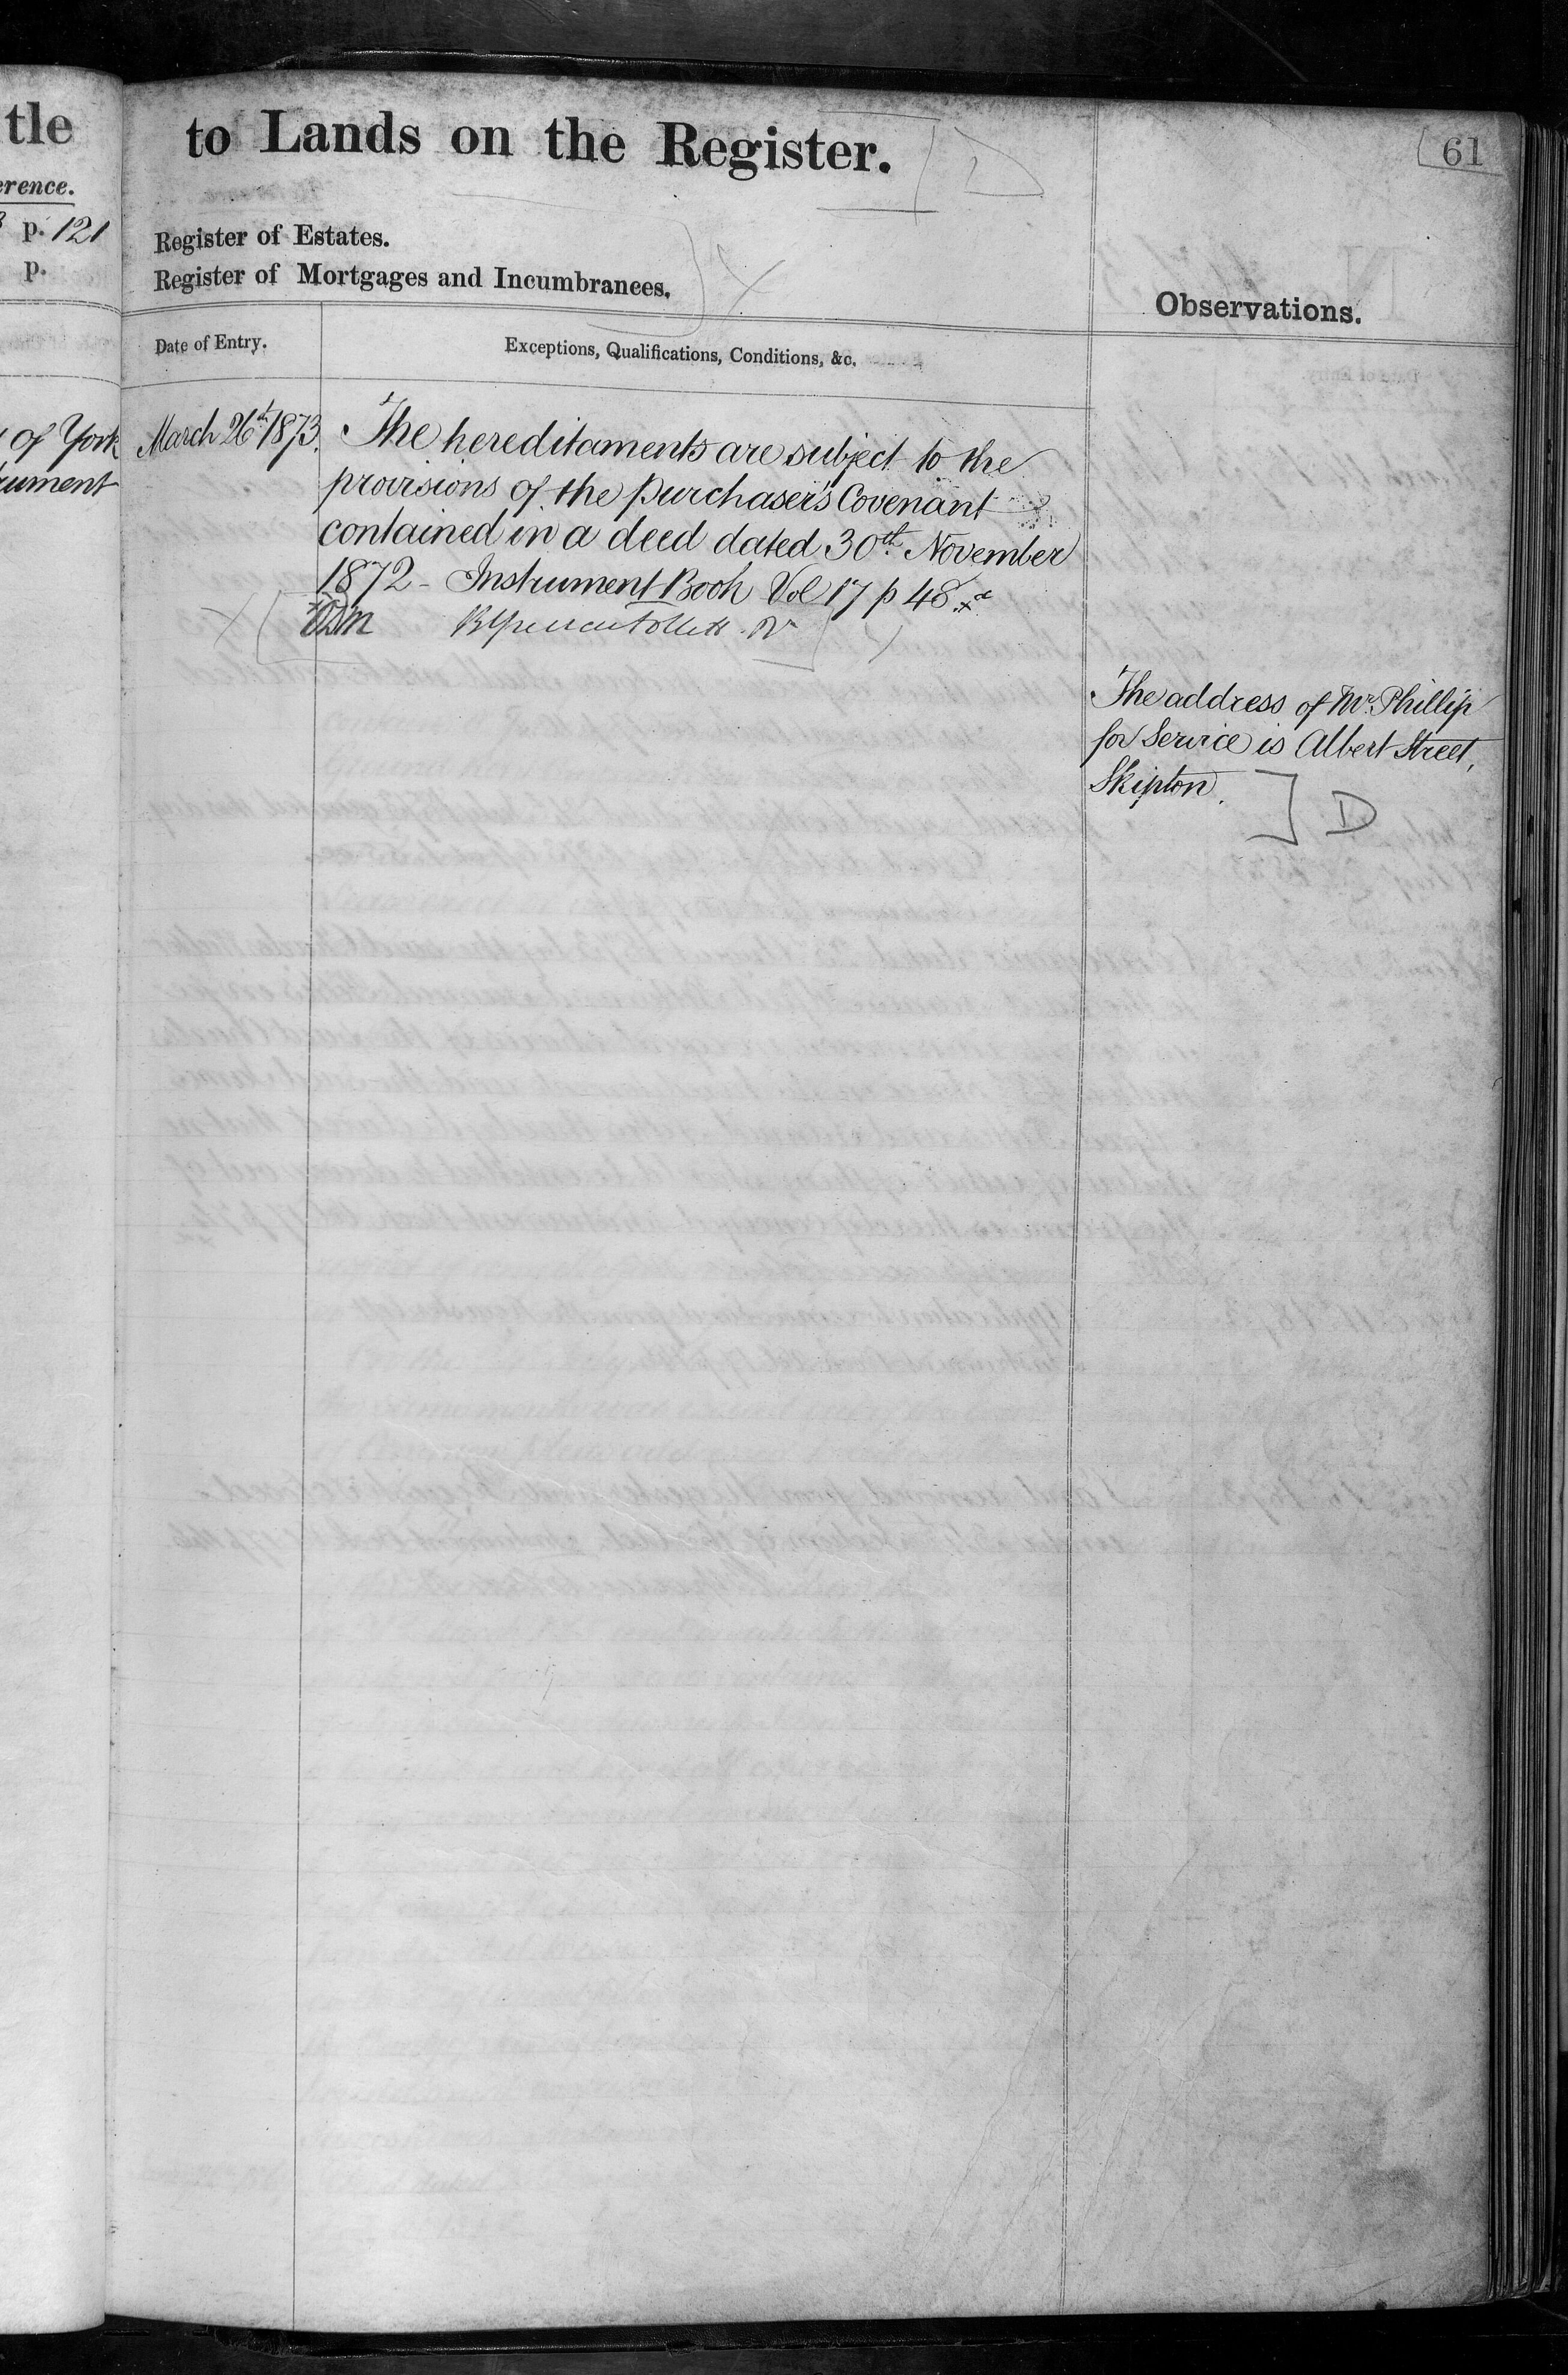 tle
erence.
p. 121
p.
of York
ument
to Lands on the Register.
D
61
Register of Estates.
Register of Mortgages and Incumbrances.
X
Observations.
Date of Entry.
Exceptions, Qualifications, Conditions, &c.
March 26th 1873.
The hereditaments are subject to the
provisions of the purchaser's Covenant
contained in a deed dated 30th November
1872 - Instrument Book Vol 17 p 48
The address of Mr. Phillip
for Service is Albert Street,
Skipton.
D